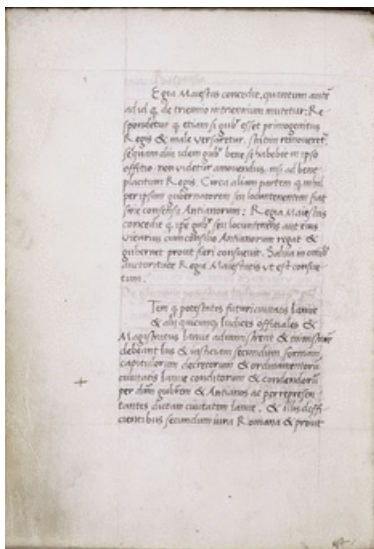 Egia Maiestas concedit, quantum autẽ
ad id q̃ de triennio in triennium mutetur: Re
spondetur q̃ etiam si gubr̃ esset primogenitus
Regis & male versaretur, statim removeret
sequam diu idem gubr̃ bene se habebit in ipso
offitio non videtur amovendus, nisi ad bene
placitum Regis. Circa aliam partem q̃ nihil
per ipsum gubernatorem seu locuntenentem fiat
sine consensu Antianorum: Regia Maiestas
concedit q̃ ipse gubr̃ seu locuntenens aut eius
vicarius cum consilio Antianorum regat &
gubernet prout fieri consuevit. Salva in
auctoritate Regie Maiestatis ut est consue
tum.
Tem q̃ potestates futuri civitatis Ianue
& alij quicunq̃ Iudices offitiales &
Magistratus Ianue administrent &
debeant Ius & iustitiam secundum formam
capitulorum decretorum & ordinamentorũ
civitatis Ianue conditorum & condendorũ
per dom̃ gubr̃em & Antianos ac per represen
tantes dictam civitatem Ianue. & illis deffi
cientibus secundum iura Romana & prout